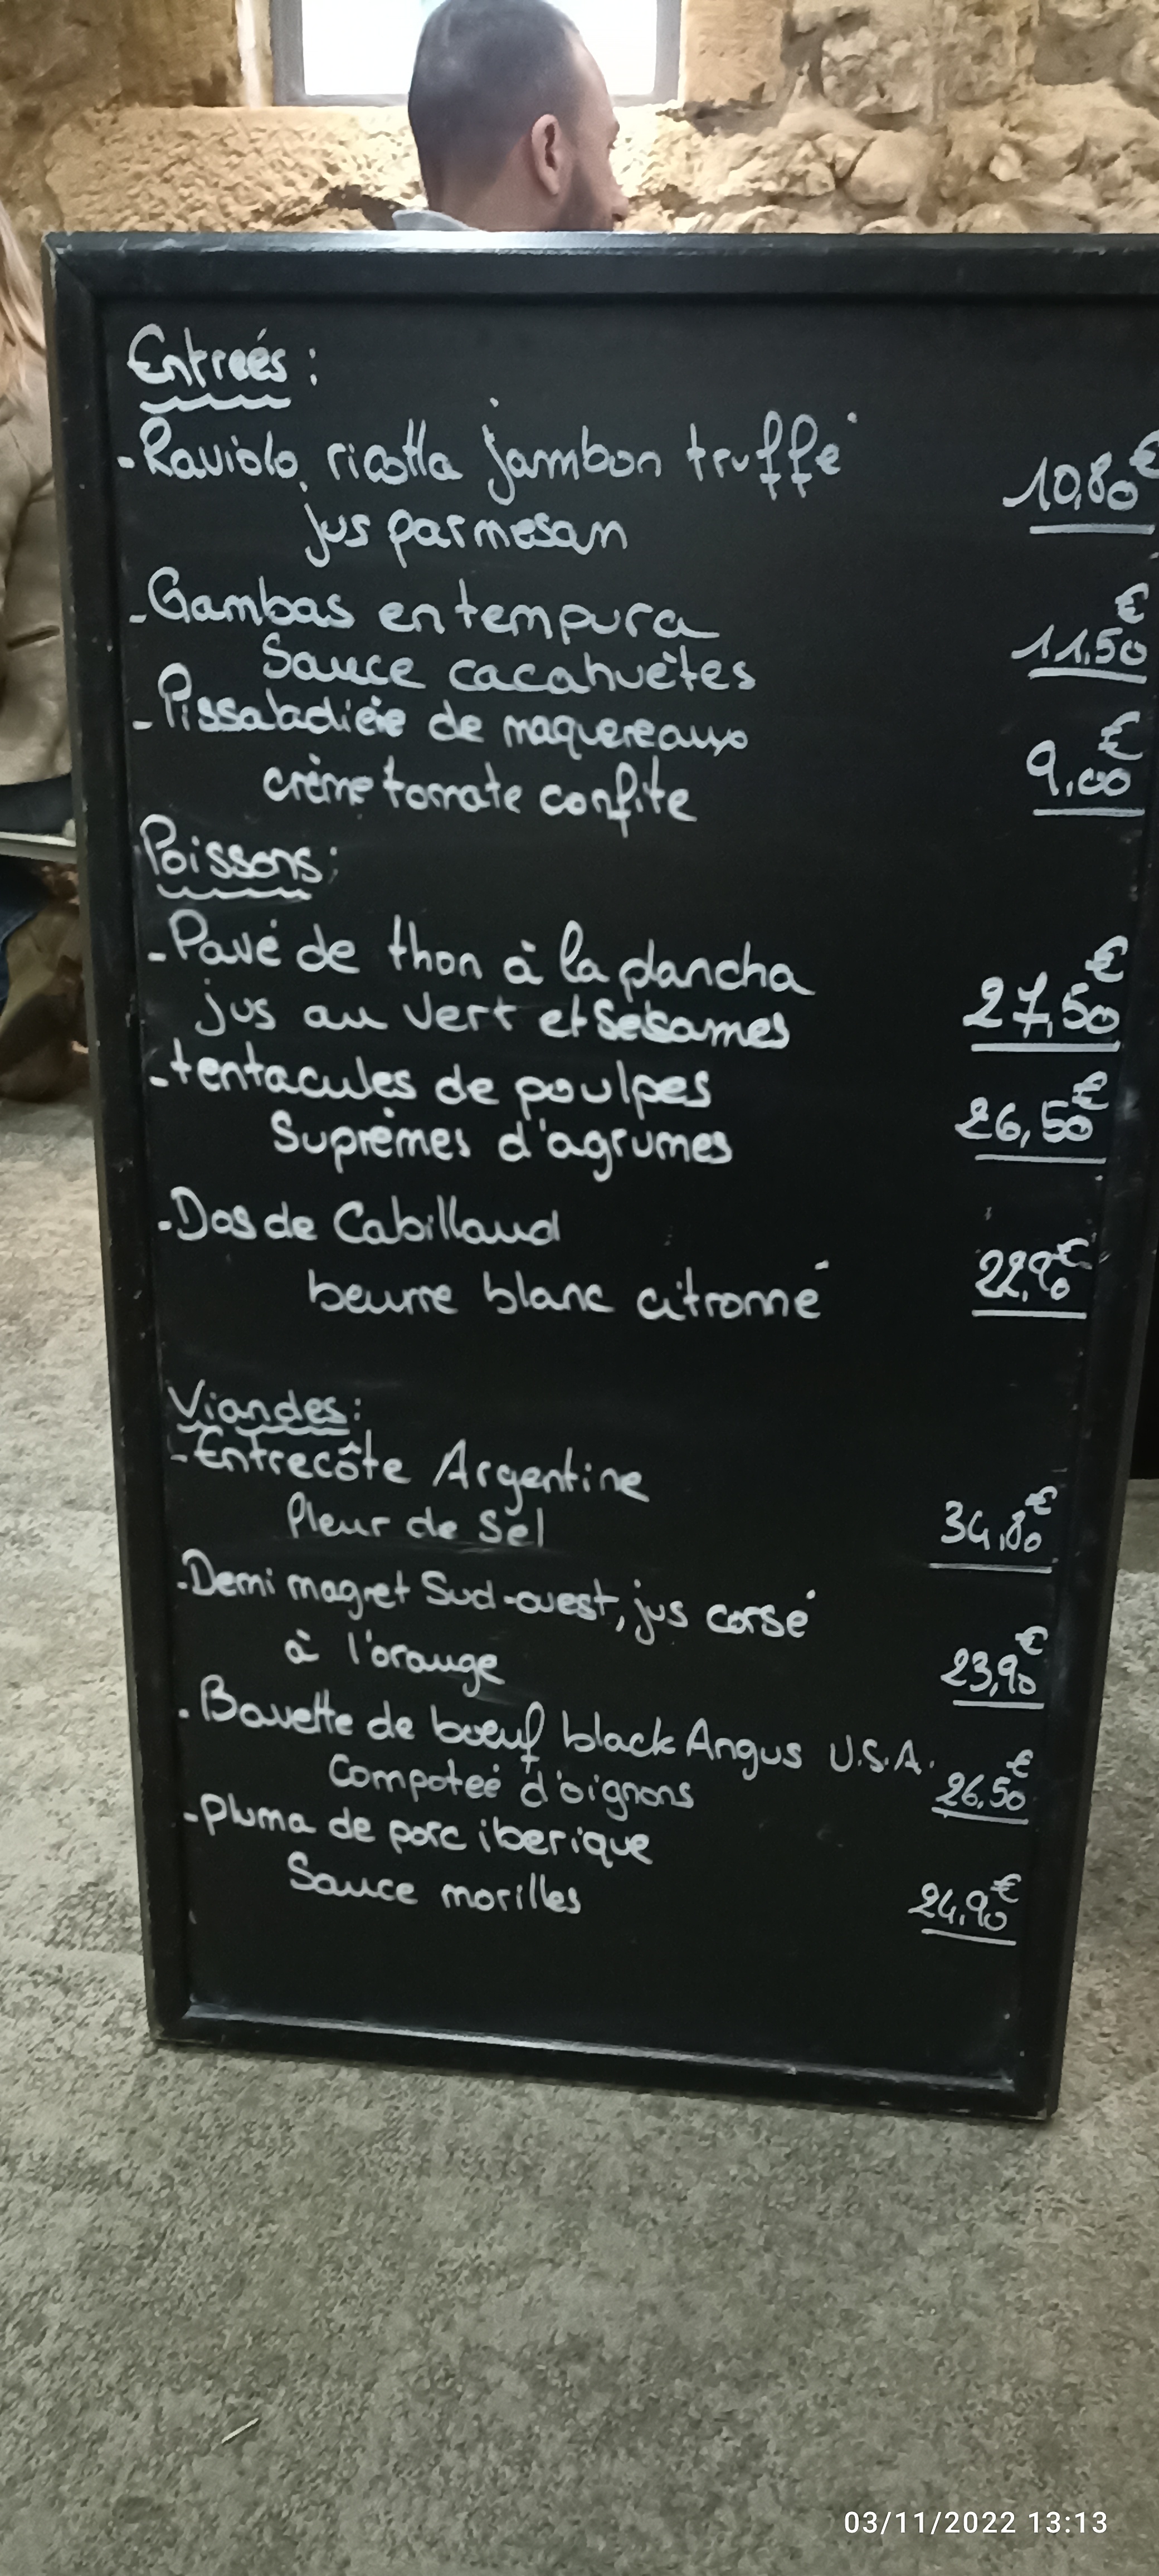 Entreés :
- Raviolo, ricotta jambon truffé 10,80€
jus parmesan
- Gambas en tempura
Sauce cacahuètes 11,50€
- Pissaladière de maquereaux
crème tomate confite 9,00€
Poissons :
- Pavé de thon à la plancha
jus au vert et Sésames 27,50€
- tentacules de poulpes
Suprêmes d'agrumes 26,50€
- Dos de Cabillaud
beurre blanc citronné 22,90€
Viandes :
- Entrecôte Argentine
Fleur de Sel 34,80€
- Demi magret Sud-ouest, jus corsé
à l'orange 23,90€
- Bavette de boeuf black Angus U.S.A.
Compoteé d'oignons 26,50€
- pluma de porc iberique
Sauce morilles 24,90€
03/11/2022 13:13